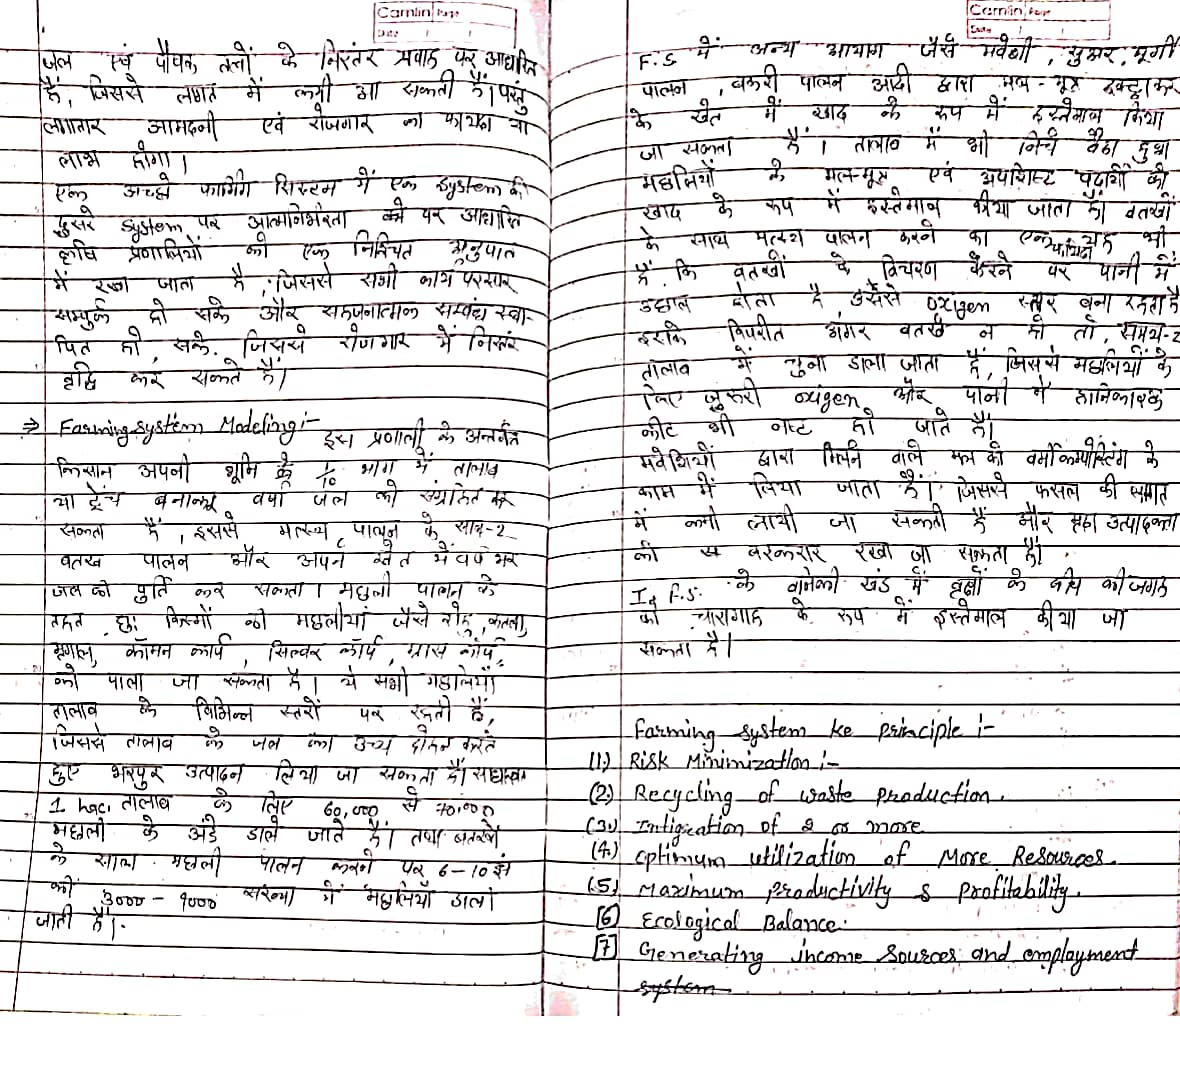 Camlin Page
Date
जल एवं पोषक तत्वों के निरंतर प्रवाह पर आधारित
हैं, जिससे लागत में कमी आ सकती हैं। परंतु
लगातार आमदनी एवं रोजगार का फायदा या
लाभ होगा।
एक अच्छे फार्मिंग सिस्टम में एक system की
दुसरे system पर आत्मनिर्भरता पर आधारित
कृषि प्रणालियों को एक निश्चित अनुपात
में रखा जाता है, जिससे सभी कार्य परस्पर
सम्पुर्क हो सके और सहजनात्मक सम्बंध स्था-
पित हो सके. जिससे रोजगार में निरंतर
वृद्धि कर सकते हैं।
⇒ Farming system Modeling:- इस प्रणाली के अन्तर्गत
किसान अपनी भूमि के 1/10 भाग में तालाब
या ट्रेंच बनाकर वर्षा जल को संग्रहित कर
सकता हैं, इससे मत्स्य पालन के साथ-2
बतख पालन और अपने खेत में वर्ष भर
जल की पुर्ति कर सकता। मछली पालन के
तहत छः किस्मों की मछलीयां जैसे रोहू, कतला,
मृगाल, कॉमन कार्प, सिल्वर कॉर्प, ग्रास कॉर्प,
को पाला जा सकता है। ये सभी मछलियाँ
तालाब के विभिन्न स्तरों पर रहती हैं,
जिससे तालाब के जल का उच्च दोहन करते
हुए भरपुर उत्पादन लिया जा सकता हैं।
1 hac. तालाब के लिए 60,000 से 70,000
मछली के अंडे डाले जाते हैं। तथा बतखों
के साथ मछली पालन करने पर 6-10 इंच
की 3000 - 9000 संख्या में मछलियाँ डाली
जाती हैं।
Camlin Page
Date
F.S में अन्य आयाम जैसे मवेशी, सुअर, मूर्गी
पालन, बकरी पालन आदी द्वारा मल-मूत्र इक्ट्ठा कर
के खेत में खाद के रूप में इस्तेमाल किया
जा सकता हैं। तालाब में भी निचे बैठा हुआ
मछलियों के मल-मूत्र एवं अपशिष्ट पदार्थों को
खाद के रूप में इस्तेमाल कीया जाता हैं। बतखों
के साथ मत्स्य पालन करने का एक फायदा यह भी
हैं कि बतखों के विचरण करने पर पानी में
उछाल होता है उससे oxigen स्तर बना रहता है
इसके विपरीत अगर बतखे न हो तो, समय-2
तालाब में चुना डाला जाता हैं, जिससे मछलियों के
लिए जुरूरी oxigen और पानी में हानिकारक
कीट भी नष्ट हो जाते हैं।
मवेशियों द्वारा मिलने वाले मल को वर्मीकम्पोस्टिंग के
काम में लिया जाता हैं। जिससे फसल की लागत
में कमी लायी जा सकती हैं और मृदा उत्पादकता
को बरकरार रखा जा सकता हैं।
I.F.S. के वानिकी खंड में वृक्षों के बीच की जगह
को चारागाह के रूप में इस्तेमाल कीया जा
सकता है।
Farming system ke principle :-
(1) Risk Minimization :-
(2) Recycling of waste production.
(3) Intigration of 2 or more.
(4) Optimum utilization of More Resources.
(5) Maximum productivity & Profitability.
[6] Ecological Balance.
[7] Generating income sources and employment
system